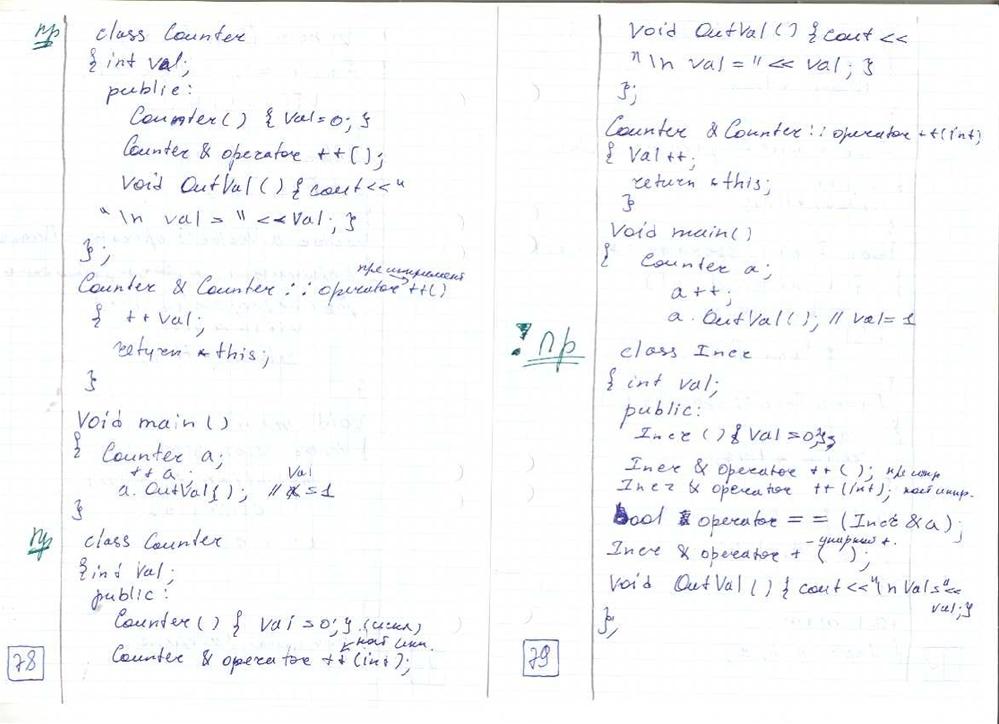 пр
class Counter
{ int val;
public:
Counter() { Val=0; }
Counter & operator ++();
Void OutVal() { cout<<"
"\n val = " << Val; }
};
преинкремент
Counter & Counter :: operator ++()
{ ++ val;
return *this;
}
Void main()
{ Counter a;
++ a;
a. OutVal(); // Val = 1
}
пр
class Counter
{ int Val;
public:
Counter() { Val = 0; }
Counter & operator ++(int);
78
Void OutVal() { cout <<
"\n val = " << val; }
};
Counter & Counter :: operator ++(int)
{ Val++;
return *this;
}
Void main()
{ Counter a;
a ++;
a. OutVal(); // Val = 1
! пр
class Incr
{ int val;
public:
Incr() { Val = 0; };
Incr & operator ++ ( ); преинкр
Incr & operator ++ (int);
bool operator == (Incr & a);
- унарный +.
Incr & operator + ( );
Void OutVal() { cout <<"\n Val="<<
val; }
};
79